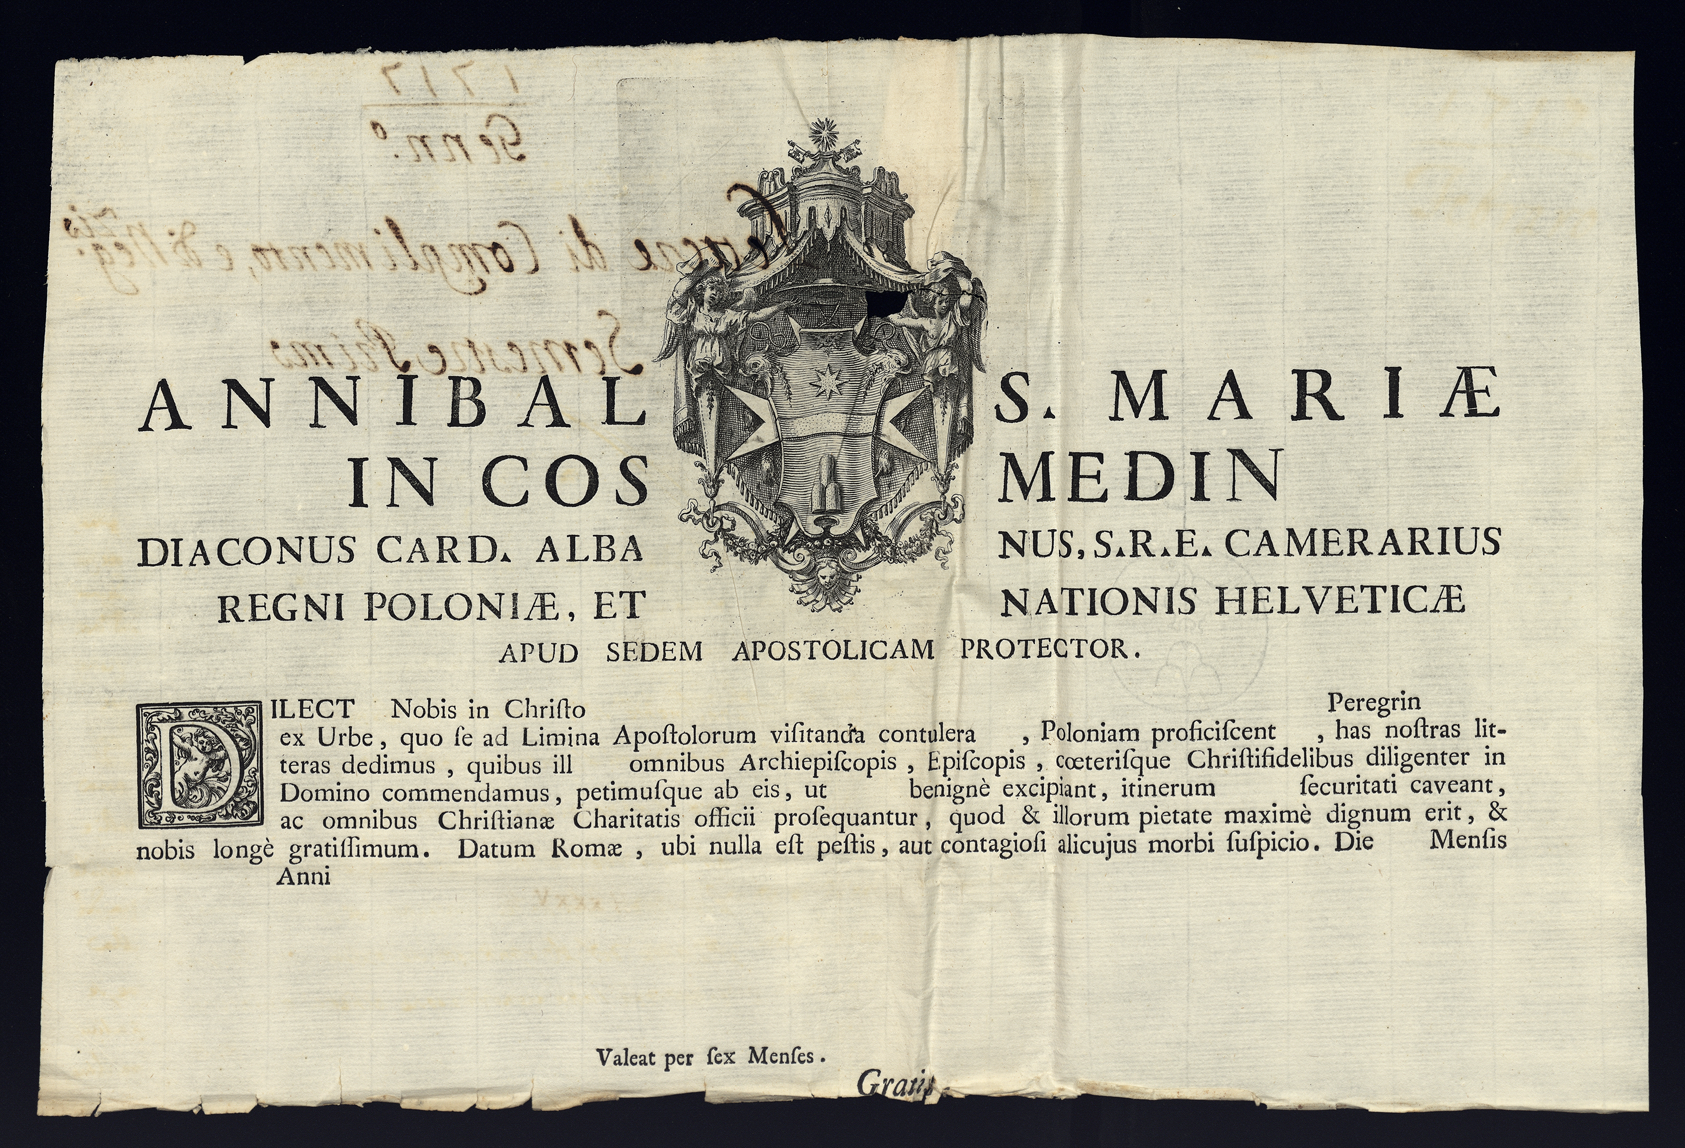 1717
Genn.º
Lettere di Complimento, e di Neg.ᶻⁱˢ
Semestre Primo
ANNIBAL S. MARIÆ
IN COS MEDIN
DIACONUS CARD. ALBA NUS, S.R.E. CAMERARIUS
REGNI POLONIÆ, ET NATIONIS HELVETICÆ
APUD SEDEM APOSTOLICAM PROTECTOR.
DILECT Nobis in Chriſto Peregrin
ex Urbe, quo ſe ad Limina Apoſtolorum viſitanda contulera , Poloniam proficiſcent , has noſtras lit-
teras dedimus, quibus ill omnibus Archiepiſcopis, Epiſcopis, cœteriſque Chriſtifidelibus diligenter in
Domino commendamus, petimuſque ab eis, ut benignè excipiant, itinerum ſecuritati caveant,
ac omnibus Chriſtianæ Charitatis officii proſequantur, quod & illorum pietate maximè dignum erit, &
nobis longè gratiſſimum. Datum Romæ, ubi nulla eſt peſtis, aut contagioſi alicujus morbi ſuſpicio. Die Menſis
Anni
Valeat per ſex Menſes.
Gratis.